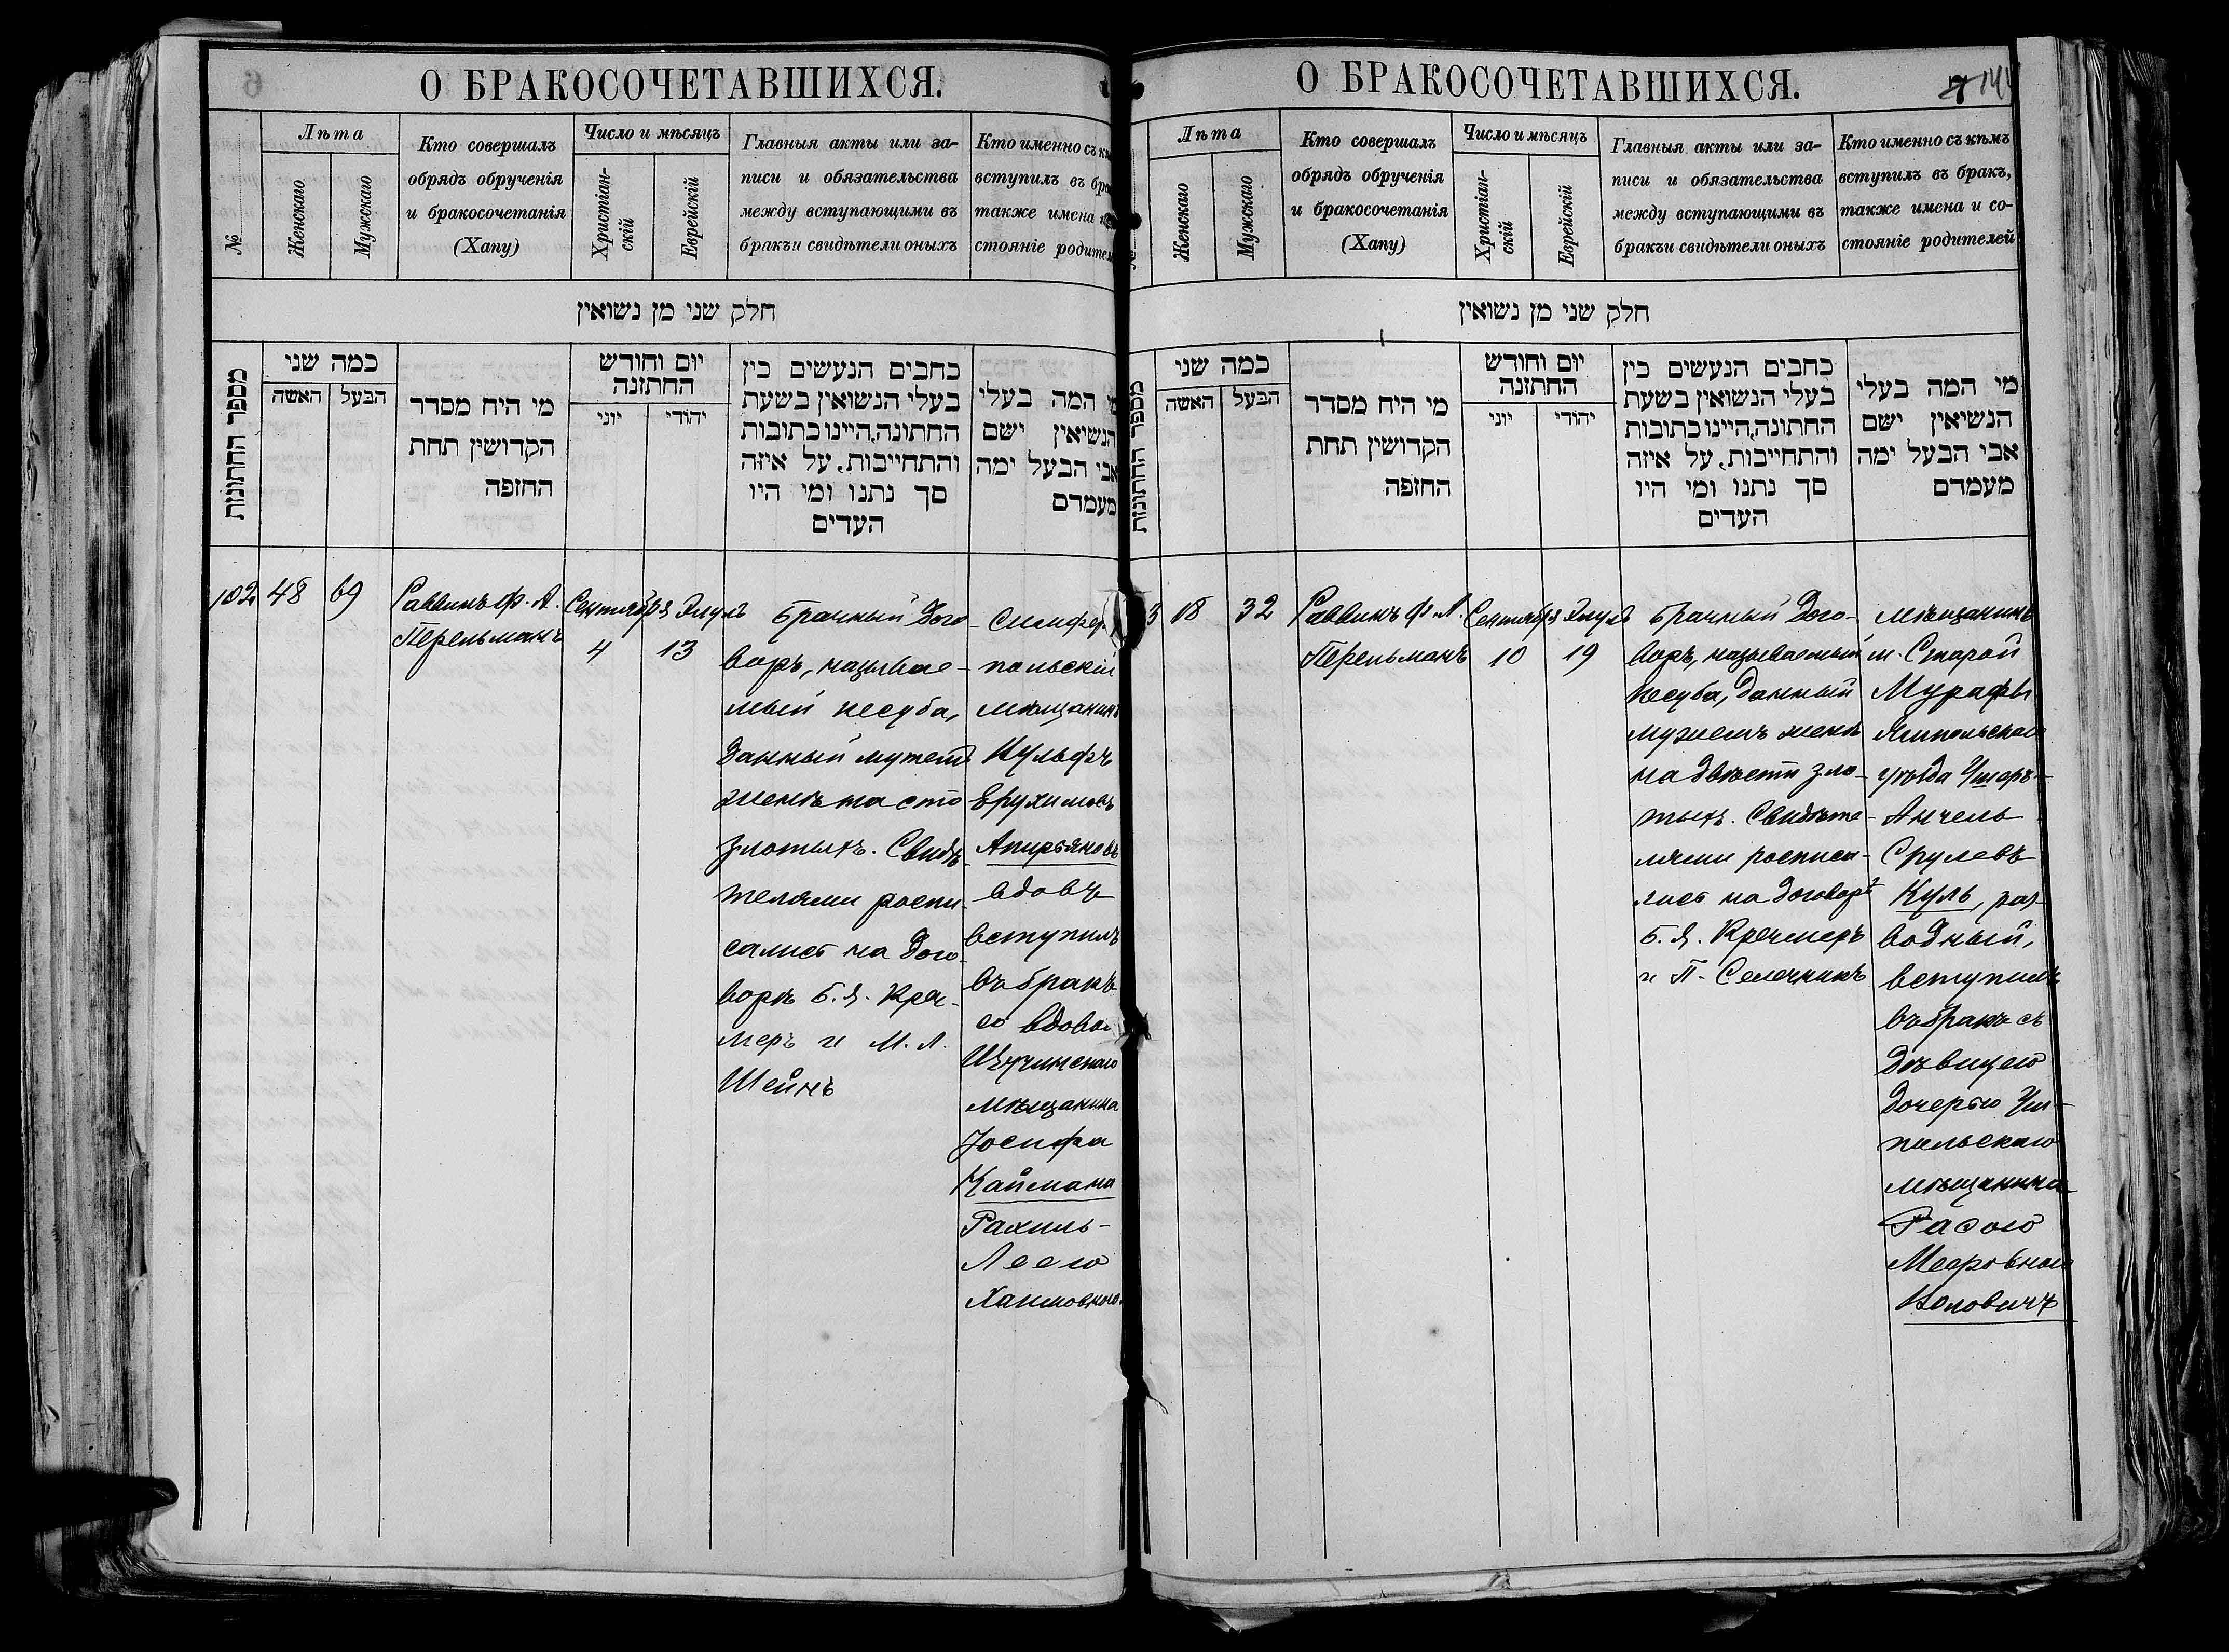 О БРАКОСОЧЕТАВШИХСЯ.
№
Лѣта
Женскаго
Мужскаго
Кто совершалъ
обрядъ обрученія
и бракосочетанія
(Хапу)
Число и мѣсяцъ
Христіан-
скій
Еврейскій
Главныя акты или за-
писи и обязательства
между вступающими въ
бракъ и свидѣтели оныхъ
Кто именно съ
вступилъ въ
также имена
стояніе
חלק שני מן נשואין
מספר החתונות
כמה שני
האשה
הבעל
מי היח מסדר
הקדושין תחת
החופה
יום וחודש
החתונה
יוני
יהודי
כחבים הנעשים כין
בעלי הנשואין בשעת
החתונה,היינו כתובות
והתחייבות, על איזה
סך נתנו ומי היו
העדים
המה בעלי
הנשיאין ישם
אבי הבעל ימה
מעמדם
102
48
69
Раввинъ Ф. А.
Перельманъ
Сентября
4
Элулъ
13
Брачный дого-
воръ, называе-
мый кесуба,
данный мужемъ
женѣ на сто
злотыхъ. Свидѣ-
телями распи-
сались на дого-
ворѣ Б. Я. Крей-
меръ и М. Л.
Шейнъ
Симфер
польскій
мѣщанинъ
Кульфъ
Ерухимовъ
вдовъ
вступилъ
въ бракъ
со вдовой
мѣщанина
Іосифа
Каймана
Рахиль-
Леею
Хаимовною
О БРАКОСОЧЕТАВШИХСЯ.
144
Лѣта
Женскаго
Мужскаго
Кто совершалъ
обрядъ обрученія
и бракосочетанія
(Хапу)
Число и мѣсяцъ
Христіан-
скій
Еврейскій
Главныя акты или за-
писи и обязательства
между вступающими въ
бракъ и свидѣтели оныхъ
Кто именно съ кѣмъ
вступилъ въ бракъ,
также имена и со-
стояніе родителей
חלק שני מן נשואין
מספר החתונות
כמה שני
האשה
הבעל
מי היח מסדר
הקדושין תחת
החופה
יום וחודש
החתונה
יוני
יהודי
כחבים הנעשים כין
בעלי הנשואין בשעת
החתונה,היינו כתובות
והתחייבות, על איזה
סך נתנו ומי היו
העדים
מי המה בעלי
הנשיאין ישם
אבי הבעל ימה
מעמדם
3
18
32
Раввинъ Ф. А.
Перельманъ
Сентября
10
Элулъ
19
Брачный дого-
воръ, называемый
кесуба, данный
мужемъ женѣ
на двѣсти зло-
тыхъ. Свидѣте-
лями росписа-
лись на договорѣ
Б. Я. Креймеръ
и П.
Мѣщанинъ
м. Старой
Мурафы
Ямпольскаго
уѣзда Ушеръ-
Анчель
Срулевъ
Куль, раз-
водный,
вступилъ
въ бракъ съ
дѣвицею
дочерью
польскаго
мѣщанина
Расею
Мееровною